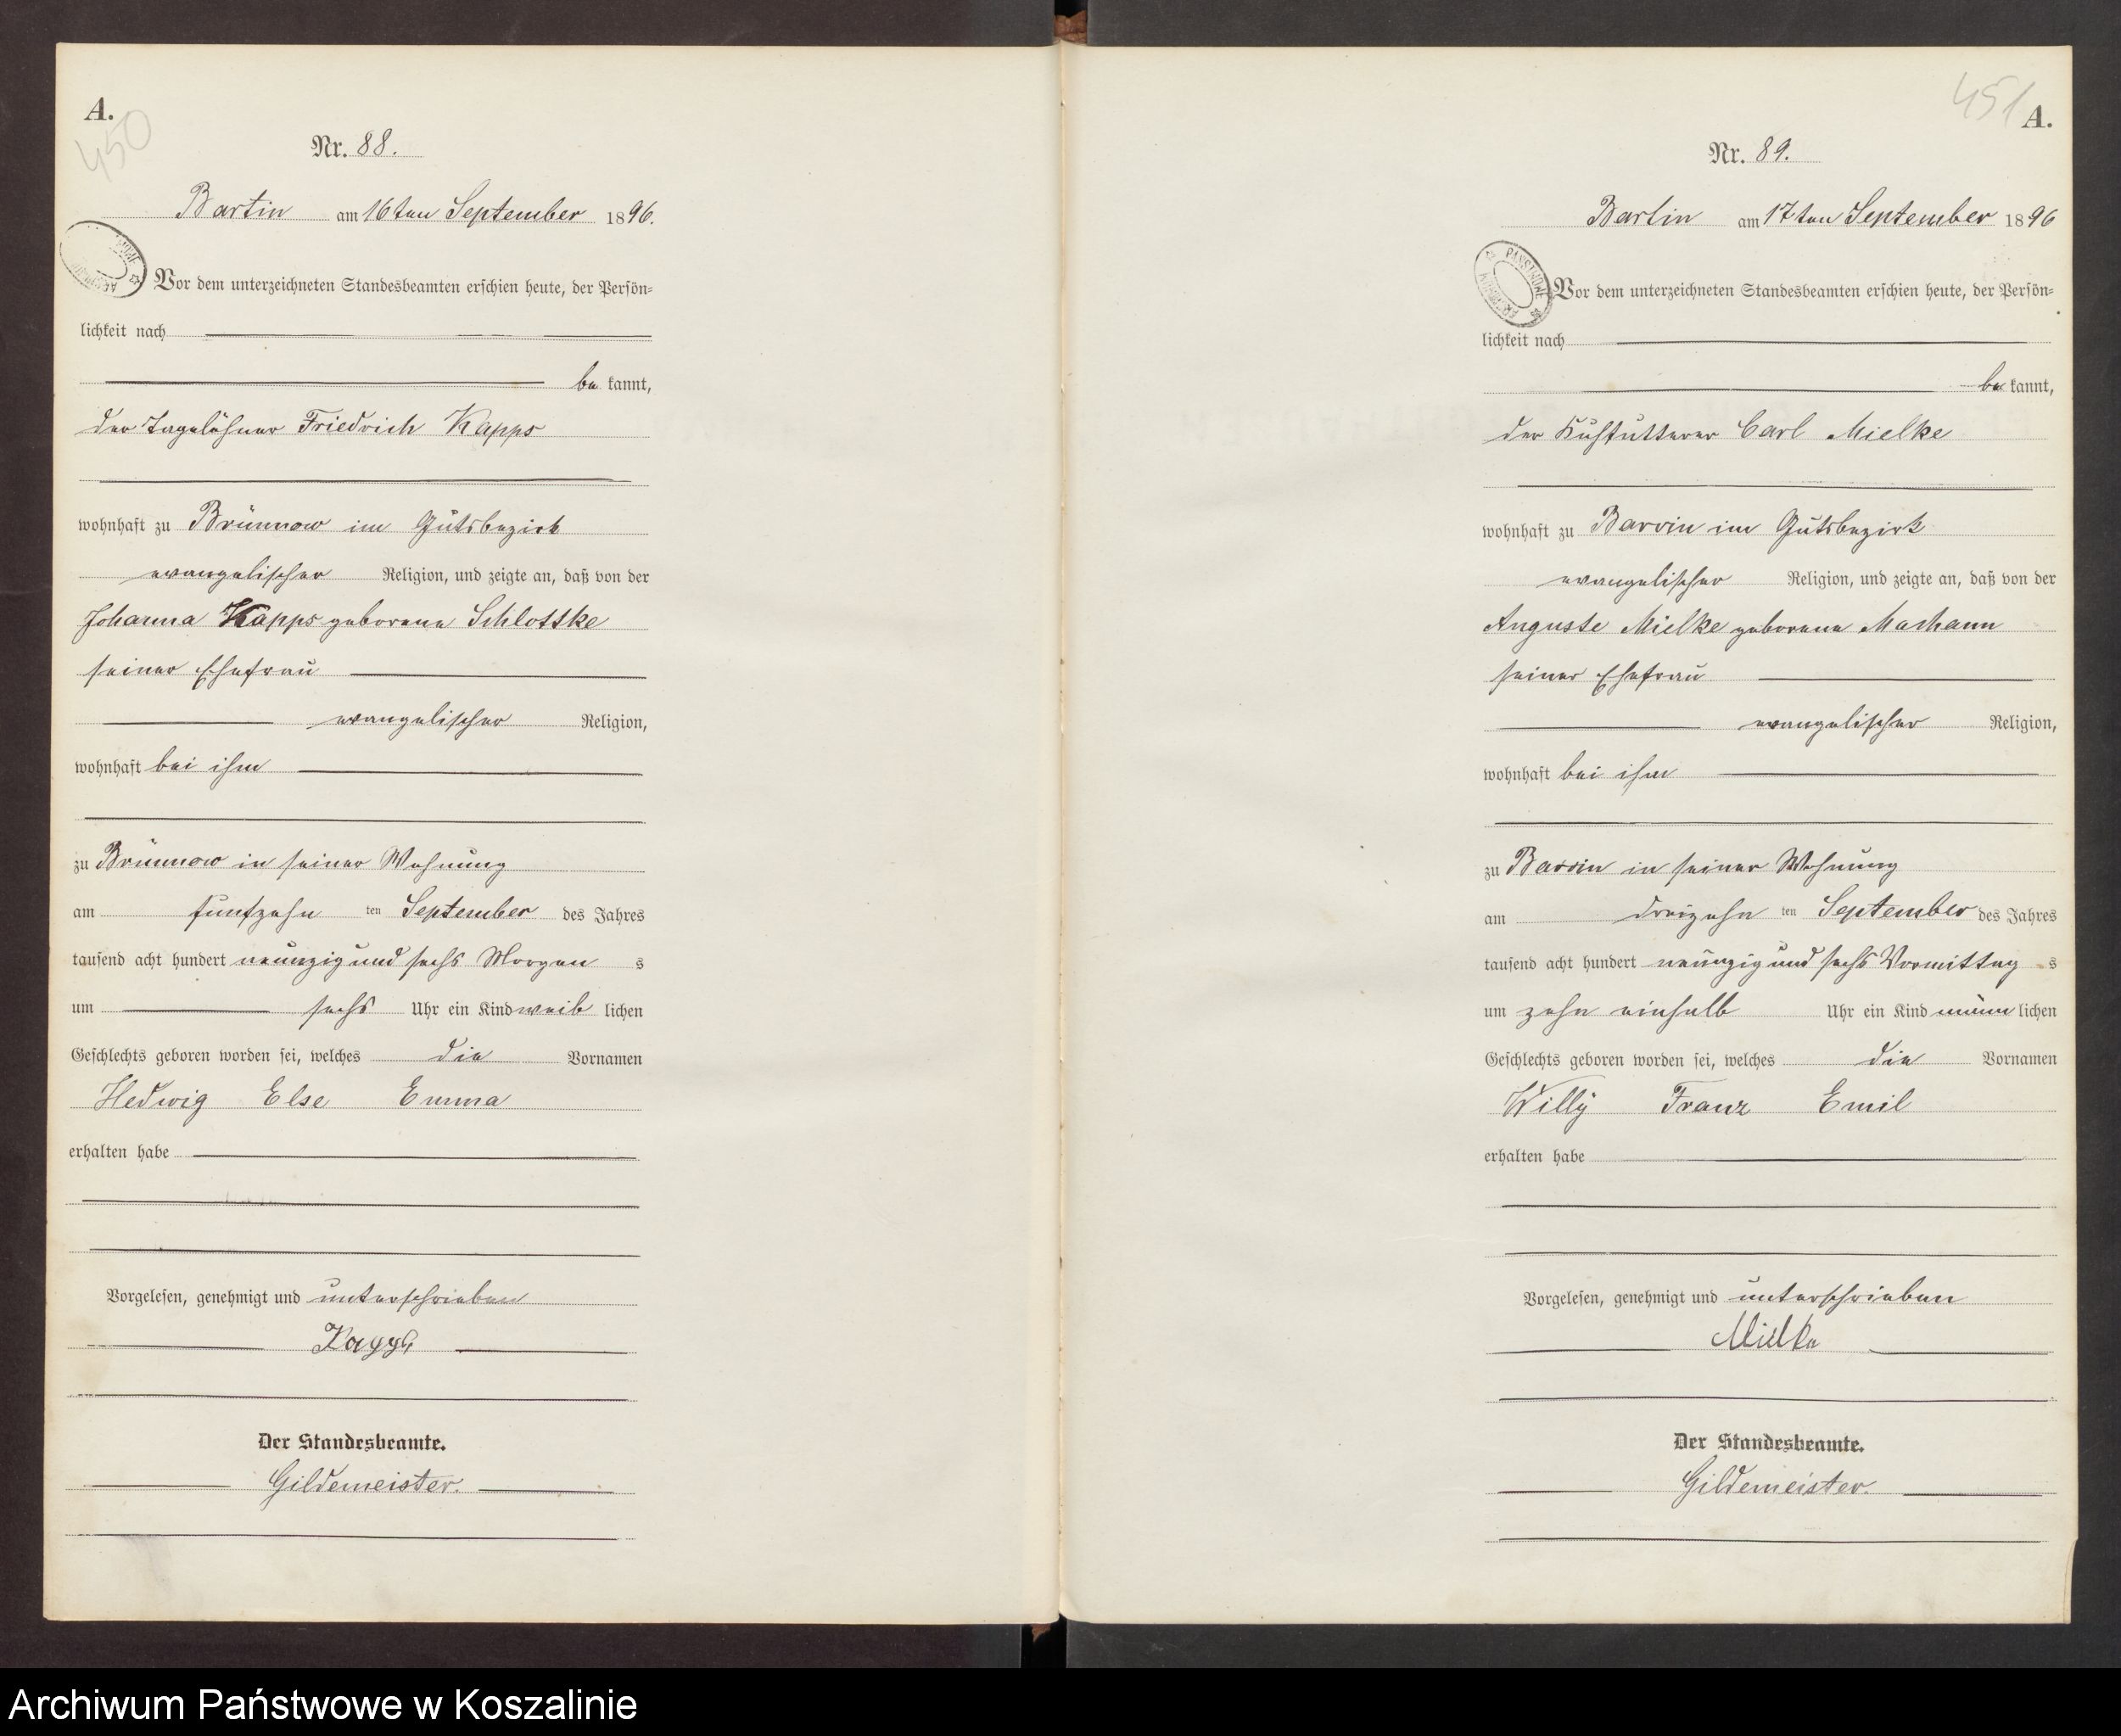 A.
450
Nr. 88.
Bartin am 16ten September 1896.
Vor dem unterzeichneten Standesbeamten erschien heute, der Persön=
lichkeit nach
be kannt,
der Tagelöhner Friedrich Kapps
wohnhaft zu Brünnow im Gutsbezirk
evangelischer Religion, und zeigte an, daß von der
Johanna Kapps geborene Schlottke
seiner Ehefrau
evangelischer Religion,
wohnhaft bei ihm
zu Brünnow in seiner Wohnung
am fünfzehn ten September des Jahres
tausend acht hundert neunzig und sechs Morgen s
um sechs Uhr ein Kind weib lichen
Geschlechts geboren worden sei, welches die Vornamen
Hedwig Else Emma
erhalten habe
Vorgelesen, genehmigt und unterschrieben
Kapps
Der Standesbeamte.
Gildemeister.
451
A.
Nr. 89.
Bartin am 17ten September 1896
PAŃSTWOWE
Vor dem unterzeichneten Standesbeamten erschien heute, der Persön=
lichkeit nach
be kannt,
der Kuhfütterer Carl Mielke
wohnhaft zu Barvin im Gutsbezirk
evangelischer Religion, und zeigte an, daß von der
Auguste Mielke geborene
seiner Ehefrau
evangelischer Religion,
wohnhaft bei ihm
zu Barvin in seiner Wohnung
am dreizehn ten September des Jahres
tausend acht hundert neunzig und sechs Vormittag s
um zehn einhalb Uhr ein Kind männ lichen
Geschlechts geboren worden sei, welches die Vornamen
Willy Franz Emil
erhalten habe
Vorgelesen, genehmigt und unterschrieben
Mielke
Der Standesbeamte.
Gildemeister.
Archiwum Państwowe w Koszalinie